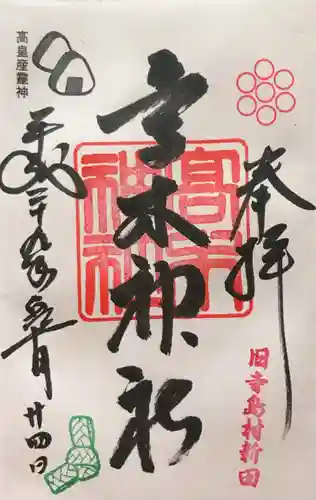 奉拝
旧寺島村新田
高木神社
高木神社
高皇産靈神
平成二十九年
月
廿四日